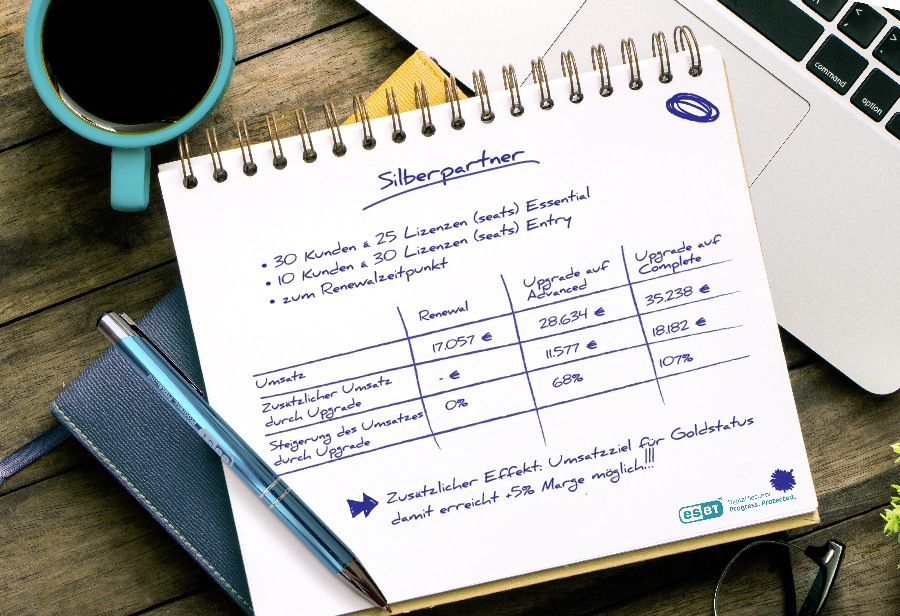 command
option
Silberpartner
• 30 Kunden à 25 Lizenzen (seats) Essential
• 10 Kunden à 30 Lizenzen (seats) Entry
• zum Renewalzeitpunkt
Renewal
Upgrade auf
Advanced
Upgrade auf
Complete
Umsatz
17.057 €
28.634 €
35.238 €
Zusätzlicher Umsatz
durch Upgrade
- €
11.577 €
18.182 €
Steigerung des Umsatzes
durch Upgrade
0%
68%
107%
Zusätzlicher Effekt: Umsatzziel für Goldstatus
damit erreicht +5% Marge möglich!!!
eseT
Digital Security
Progress. Protected.